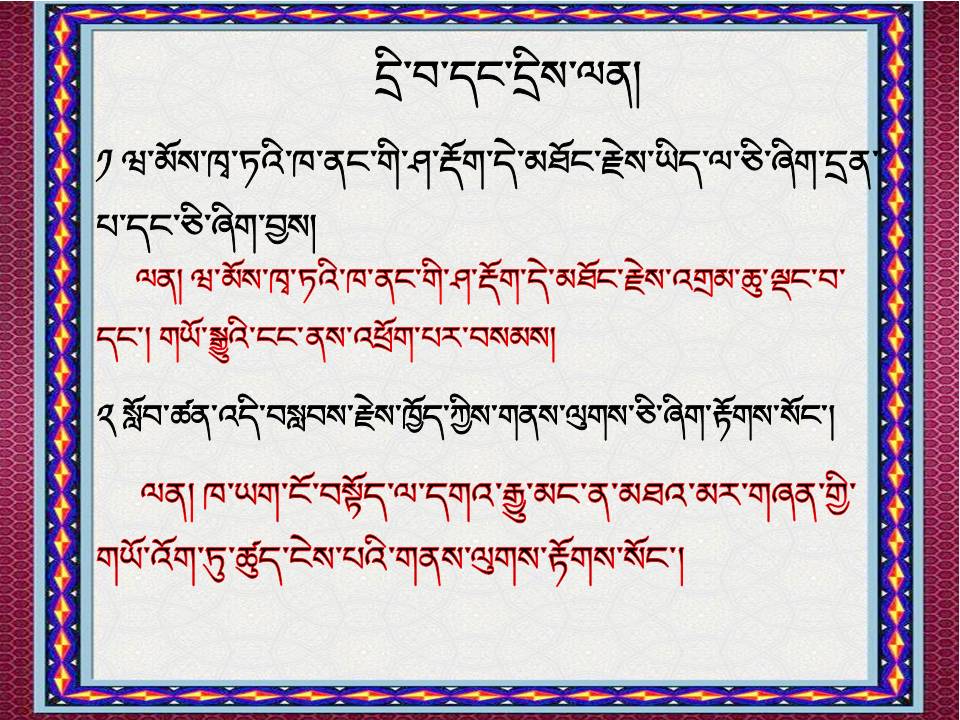 དྲི་བ་དང་དྲིས་ལན།
༡ ཝ་མོས་ཁྭ་ཏའི་ཁ་ནང་གི་ཤ་རྡོག་དེ་མཐོང་རྗེས་ཡིད་ལ་ཅི་ཞིག་དྲན་
པ་དང་ཅི་ཞིག་བྱས།
ལན། ཝ་མོས་ཁྭ་ཏའི་ཁ་ནང་གི་ཤ་རྡོག་དེ་མཐོང་རྗེས་འགྲམ་ཆུ་ལྡང་བ་
དང་། གཡོ་སྒྱུའི་ངང་ནས་འཕྲོག་པར་བསམས།
༢ སློབ་ཚན་འདི་བསླབས་རྗེས་ཁྱོད་ཀྱིས་གནས་ལུགས་ཅི་ཞིག་རྟོགས་སོང་།
ལན། ཁ་ཡག་ངོ་བསྟོད་ལ་དགའ་རྒྱུ་མང་ན་མཐའ་མར་གཞན་གྱི་
གཡོ་འོག་ཏུ་ཚུད་ངེས་པའི་གནས་ལུགས་རྟོགས་སོང་།